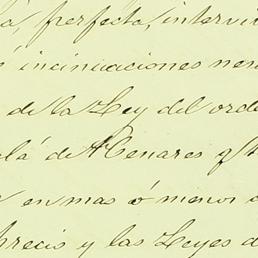 á, perfecta, intervi
é incinuaciones nen
de la Ley del orde
alá de Henares q
en mas ó menor c
precio y las Leyes d